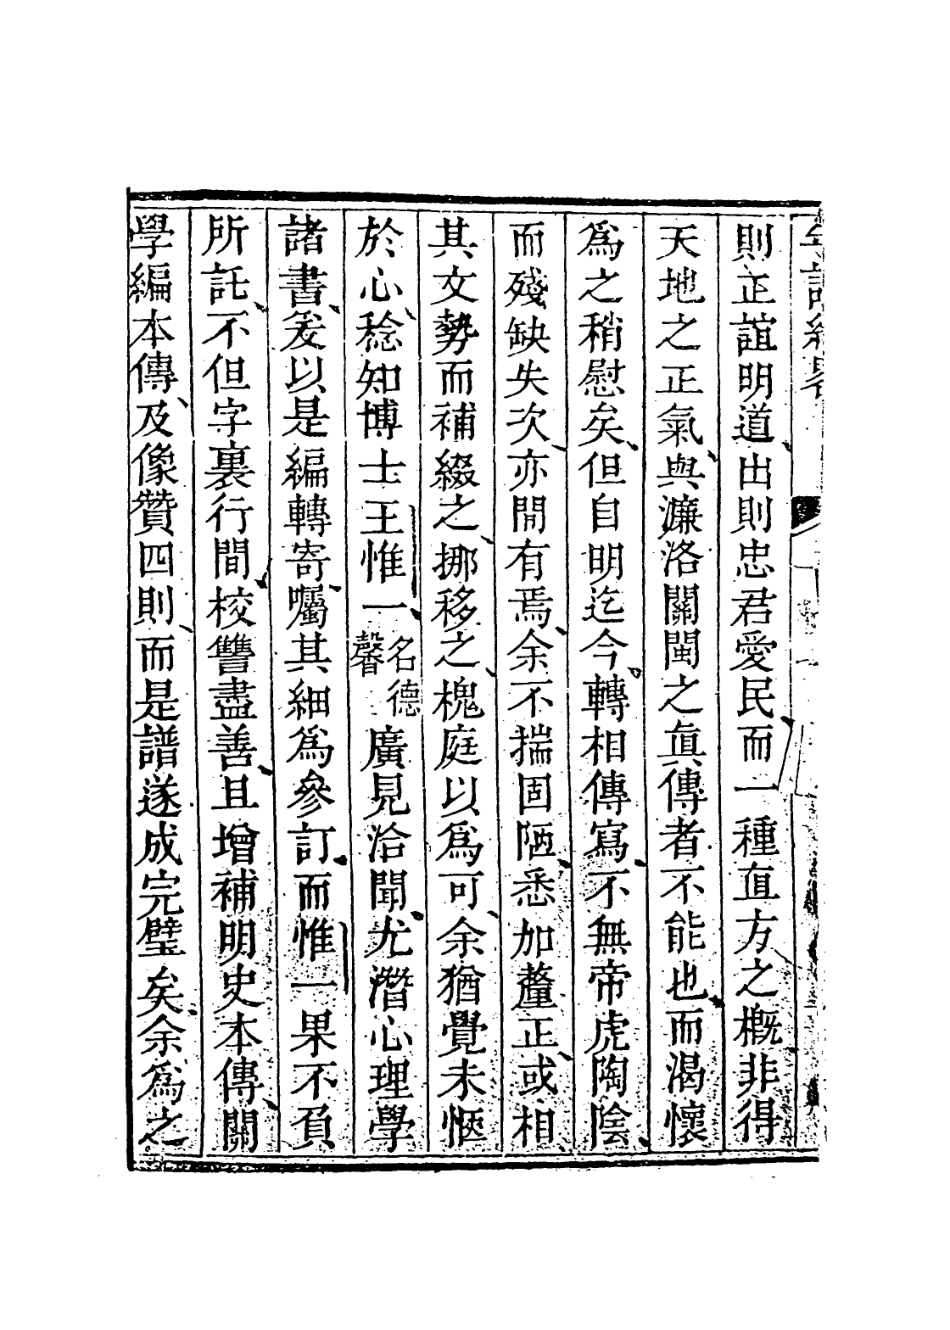 則正誼明道、出則忠君愛民、而一種直方之概、非得
天地之正氣、與濂洛關閩之眞傳者不能也、而渴懷
爲之稍慰矣、但自明迄今、轉相傳寫、不無帝虎陶陰、
而殘缺失次、亦間有焉、余不揣固陋、悉加釐正、或相
其文勢而補綴之、挪移之、槐庭以爲可、余猶覺未愜
於心、稔知博士王惟一、名德馨廣見洽聞、尤潛心理學
諸書、爰以是編轉寄、囑其細爲參訂、而惟一果不負
所託、不但字裏行間、校讐盡善、且增補明史本傳、關
學編本傳、及像贊四則、而是譜遂成完璧矣、余爲之